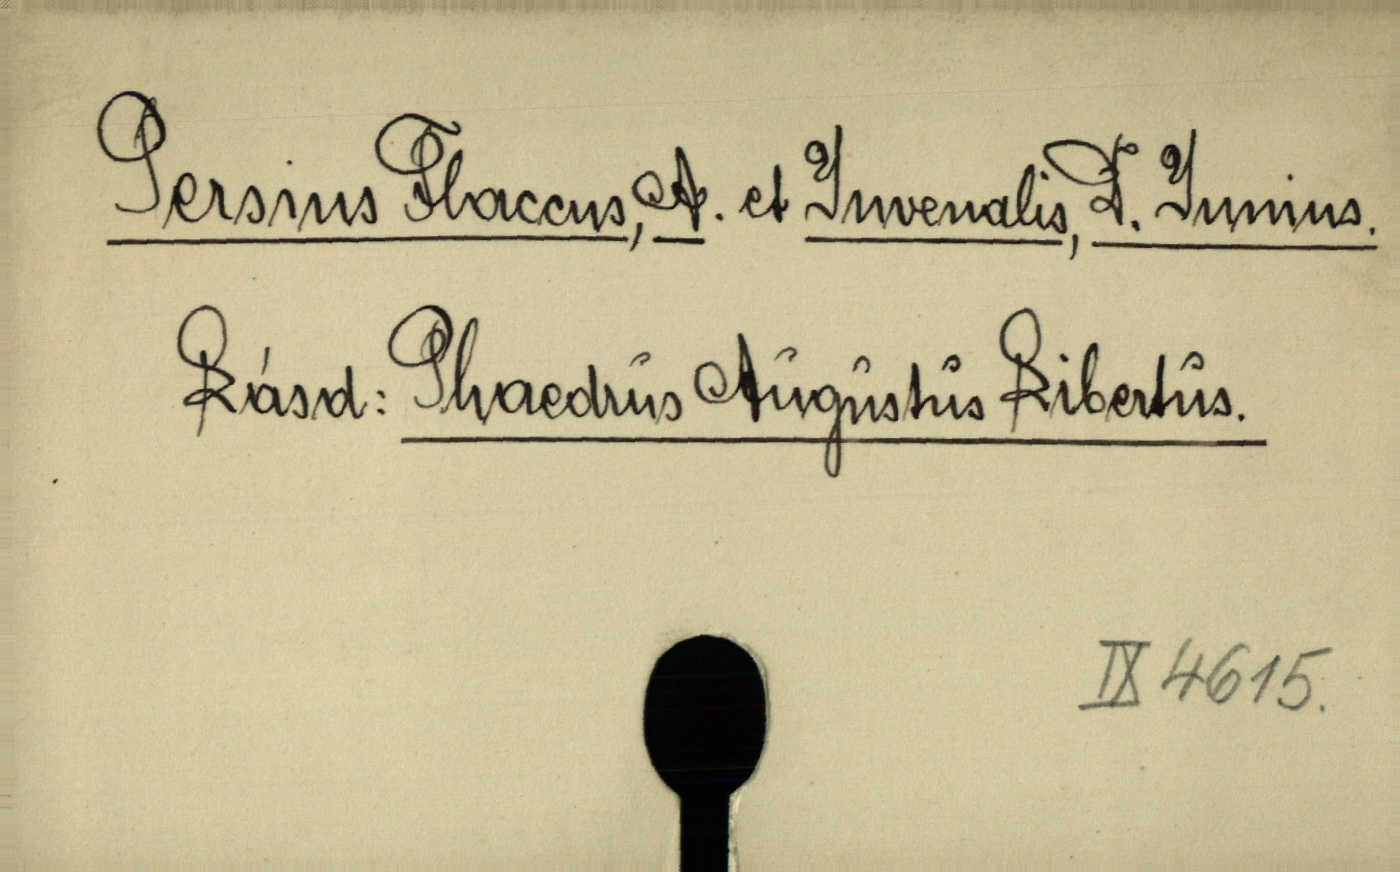 Persius Flaccus, A. et Iuvenalis, D. Iunius.
Lásd: Phaedrus Augustus Libertus.
IX 4615.